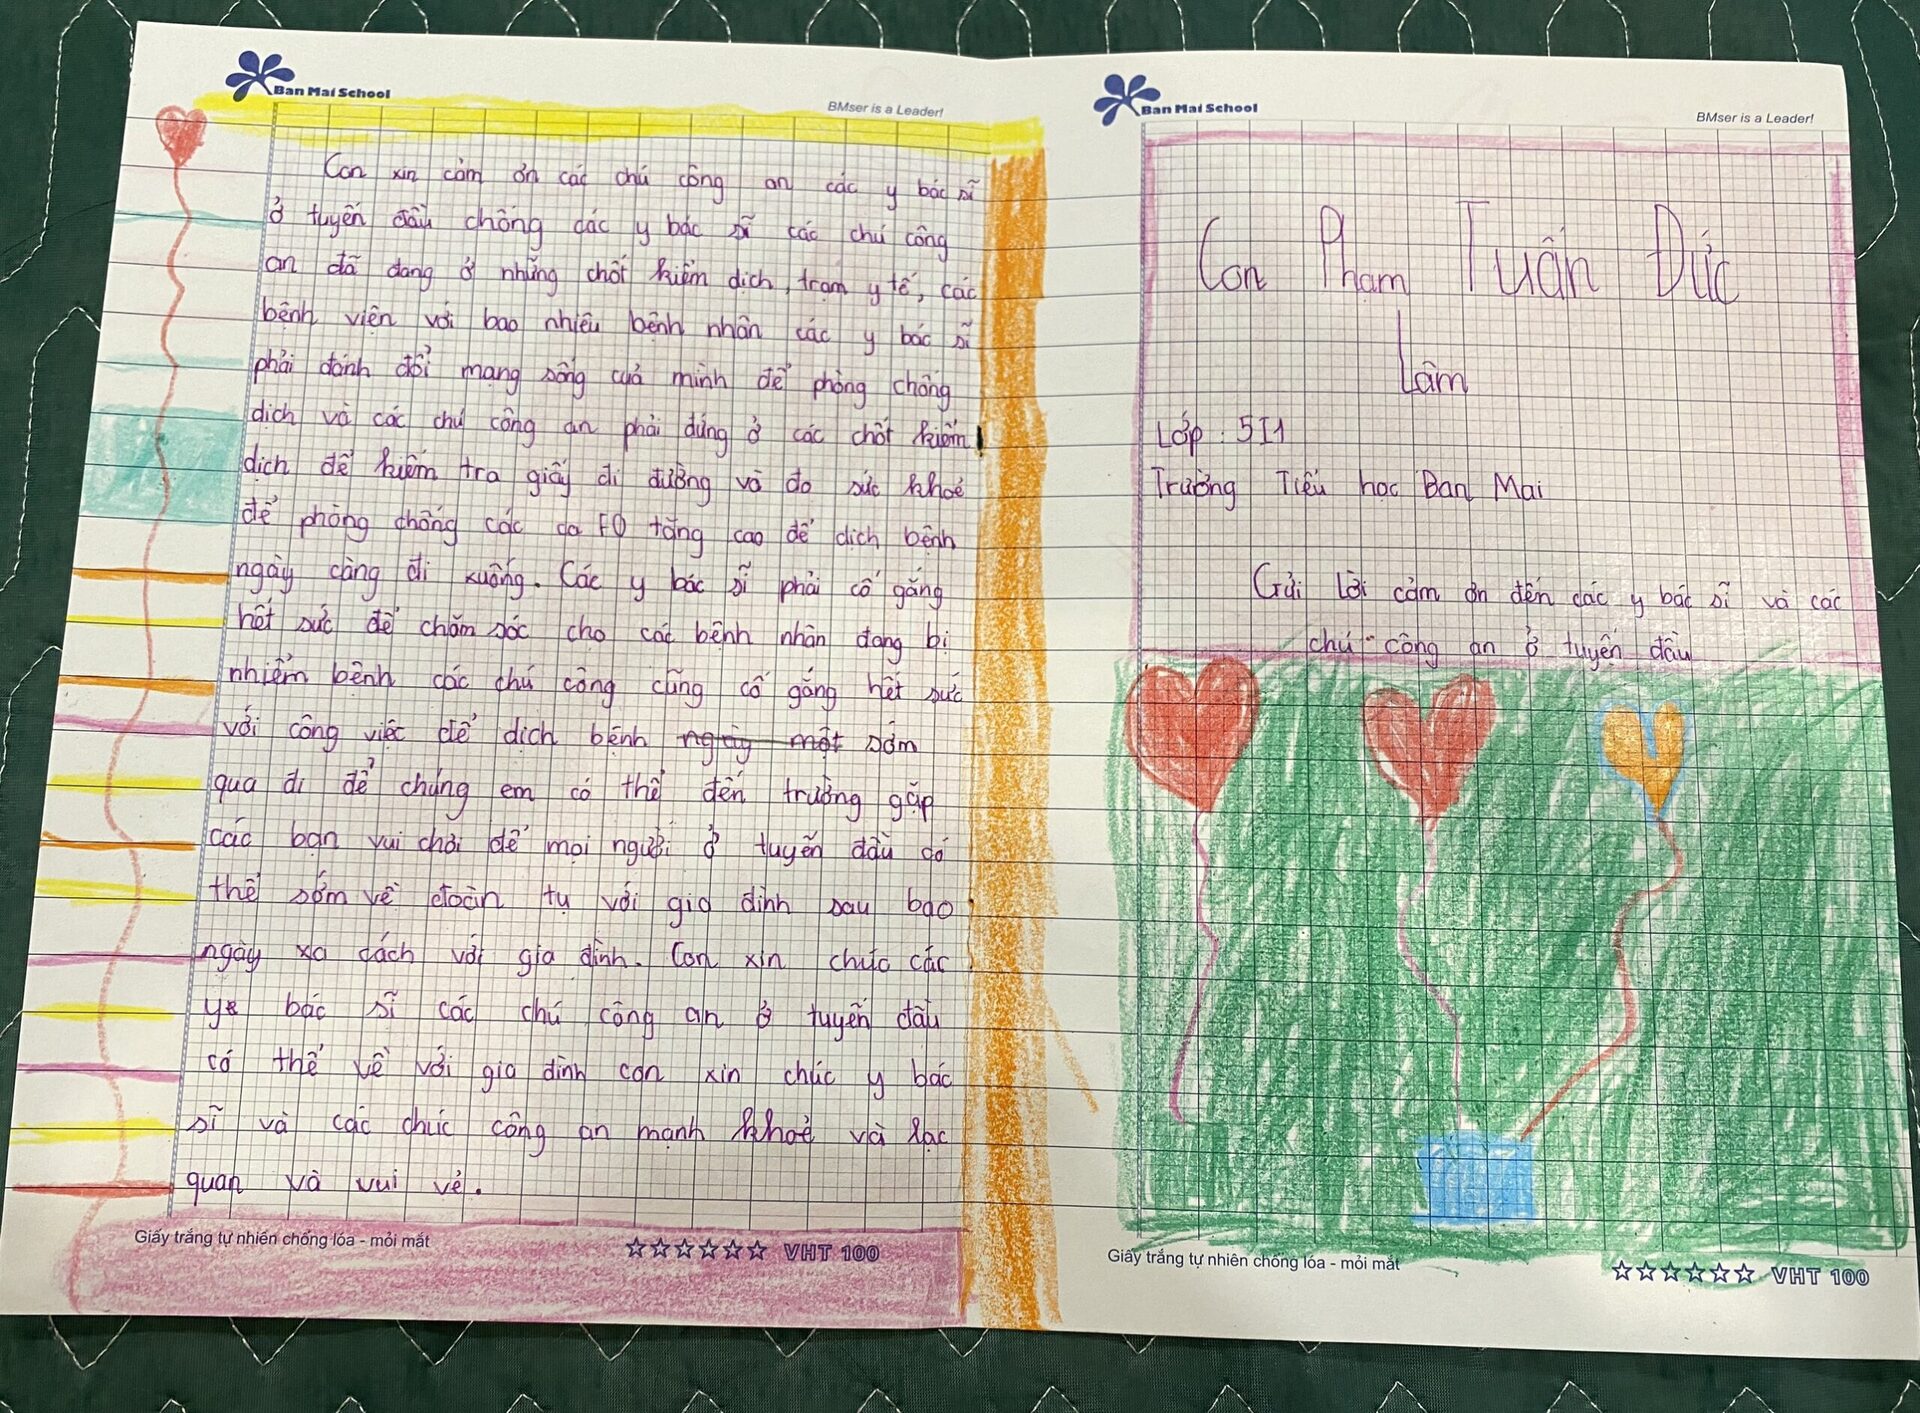 Ban Mai School
BMser is a Leader!
Con xin cảm ơn các chú công an các y bác sĩ
ở tuyến đầu chống các y bác sĩ các chú công
an đã đang ở những chốt kiểm dịch, trạm y tế, các
bệnh viện với bao nhiêu bệnh nhân các y bác sĩ
phải đánh đổi mạng sống cuả mình để phòng chống
dịch và các chú công an phải đứng ở các chốt kiểm
dịch để kiểm tra giấy đi đường và đo sức khoẻ
để phòng chống các ca F0 tăng cao để dịch bệnh
ngày càng đi xuống. Các y bác sĩ phải cố gắng
hết sức để chăm sóc cho các bệnh nhân đang bị
nhiễm bệnh các chú công cũng cố gắng hết sức
với công việc để dịch bệnh ngày một sớm
qua đi để chúng em có thể đến trường gặp
các bạn vui chơi để mọi người ở tuyến đầu có
thể sớm về đoàn tụ với gia đình sau bao
ngày xa cách với gia đình. Con xin chúc các
y bác sĩ các chú công an ở tuyến đầu
có thể về với gia đình con xin chúc y bác
sĩ và các chúc công an mạnh khoẻ và lạc
quan và vui vẻ.
Giấy trắng tự nhiên chống lóa - mỏi mắt
☆☆☆☆☆☆ VHT 100
Ban Mai School
BMser is a Leader!
Con Phạm Tuấn Đức
Lâm
Lớp : 5I1
Trường Tiểu học Ban Mai
Gửi lời cảm ơn đến các y bác sĩ và các
chú công an ở tuyến đầu
Giấy trắng tự nhiên chống lóa - mỏi mắt
☆☆☆☆☆☆ VHT 100